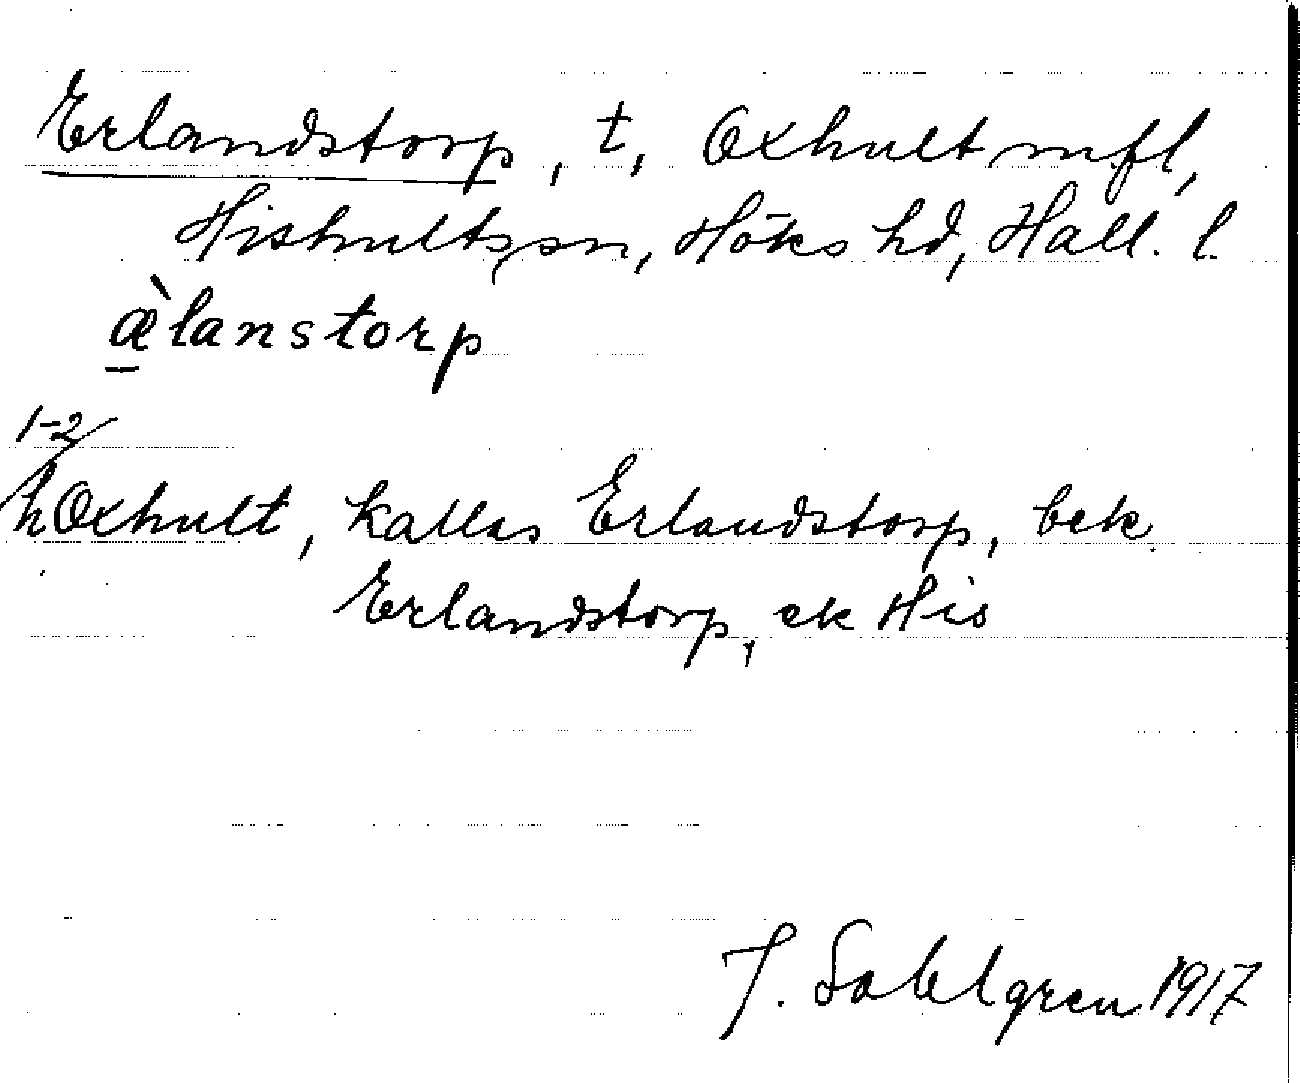 Erlandstorp, t, Oxhult mfl,
Hishults sn, Höks hd, Hall. l.
æ̀lanstorp
1-2/
h Oxhult, kallas Erlandstorp, bek
Erlandstorp, ek His
J. Sahlgren 1917